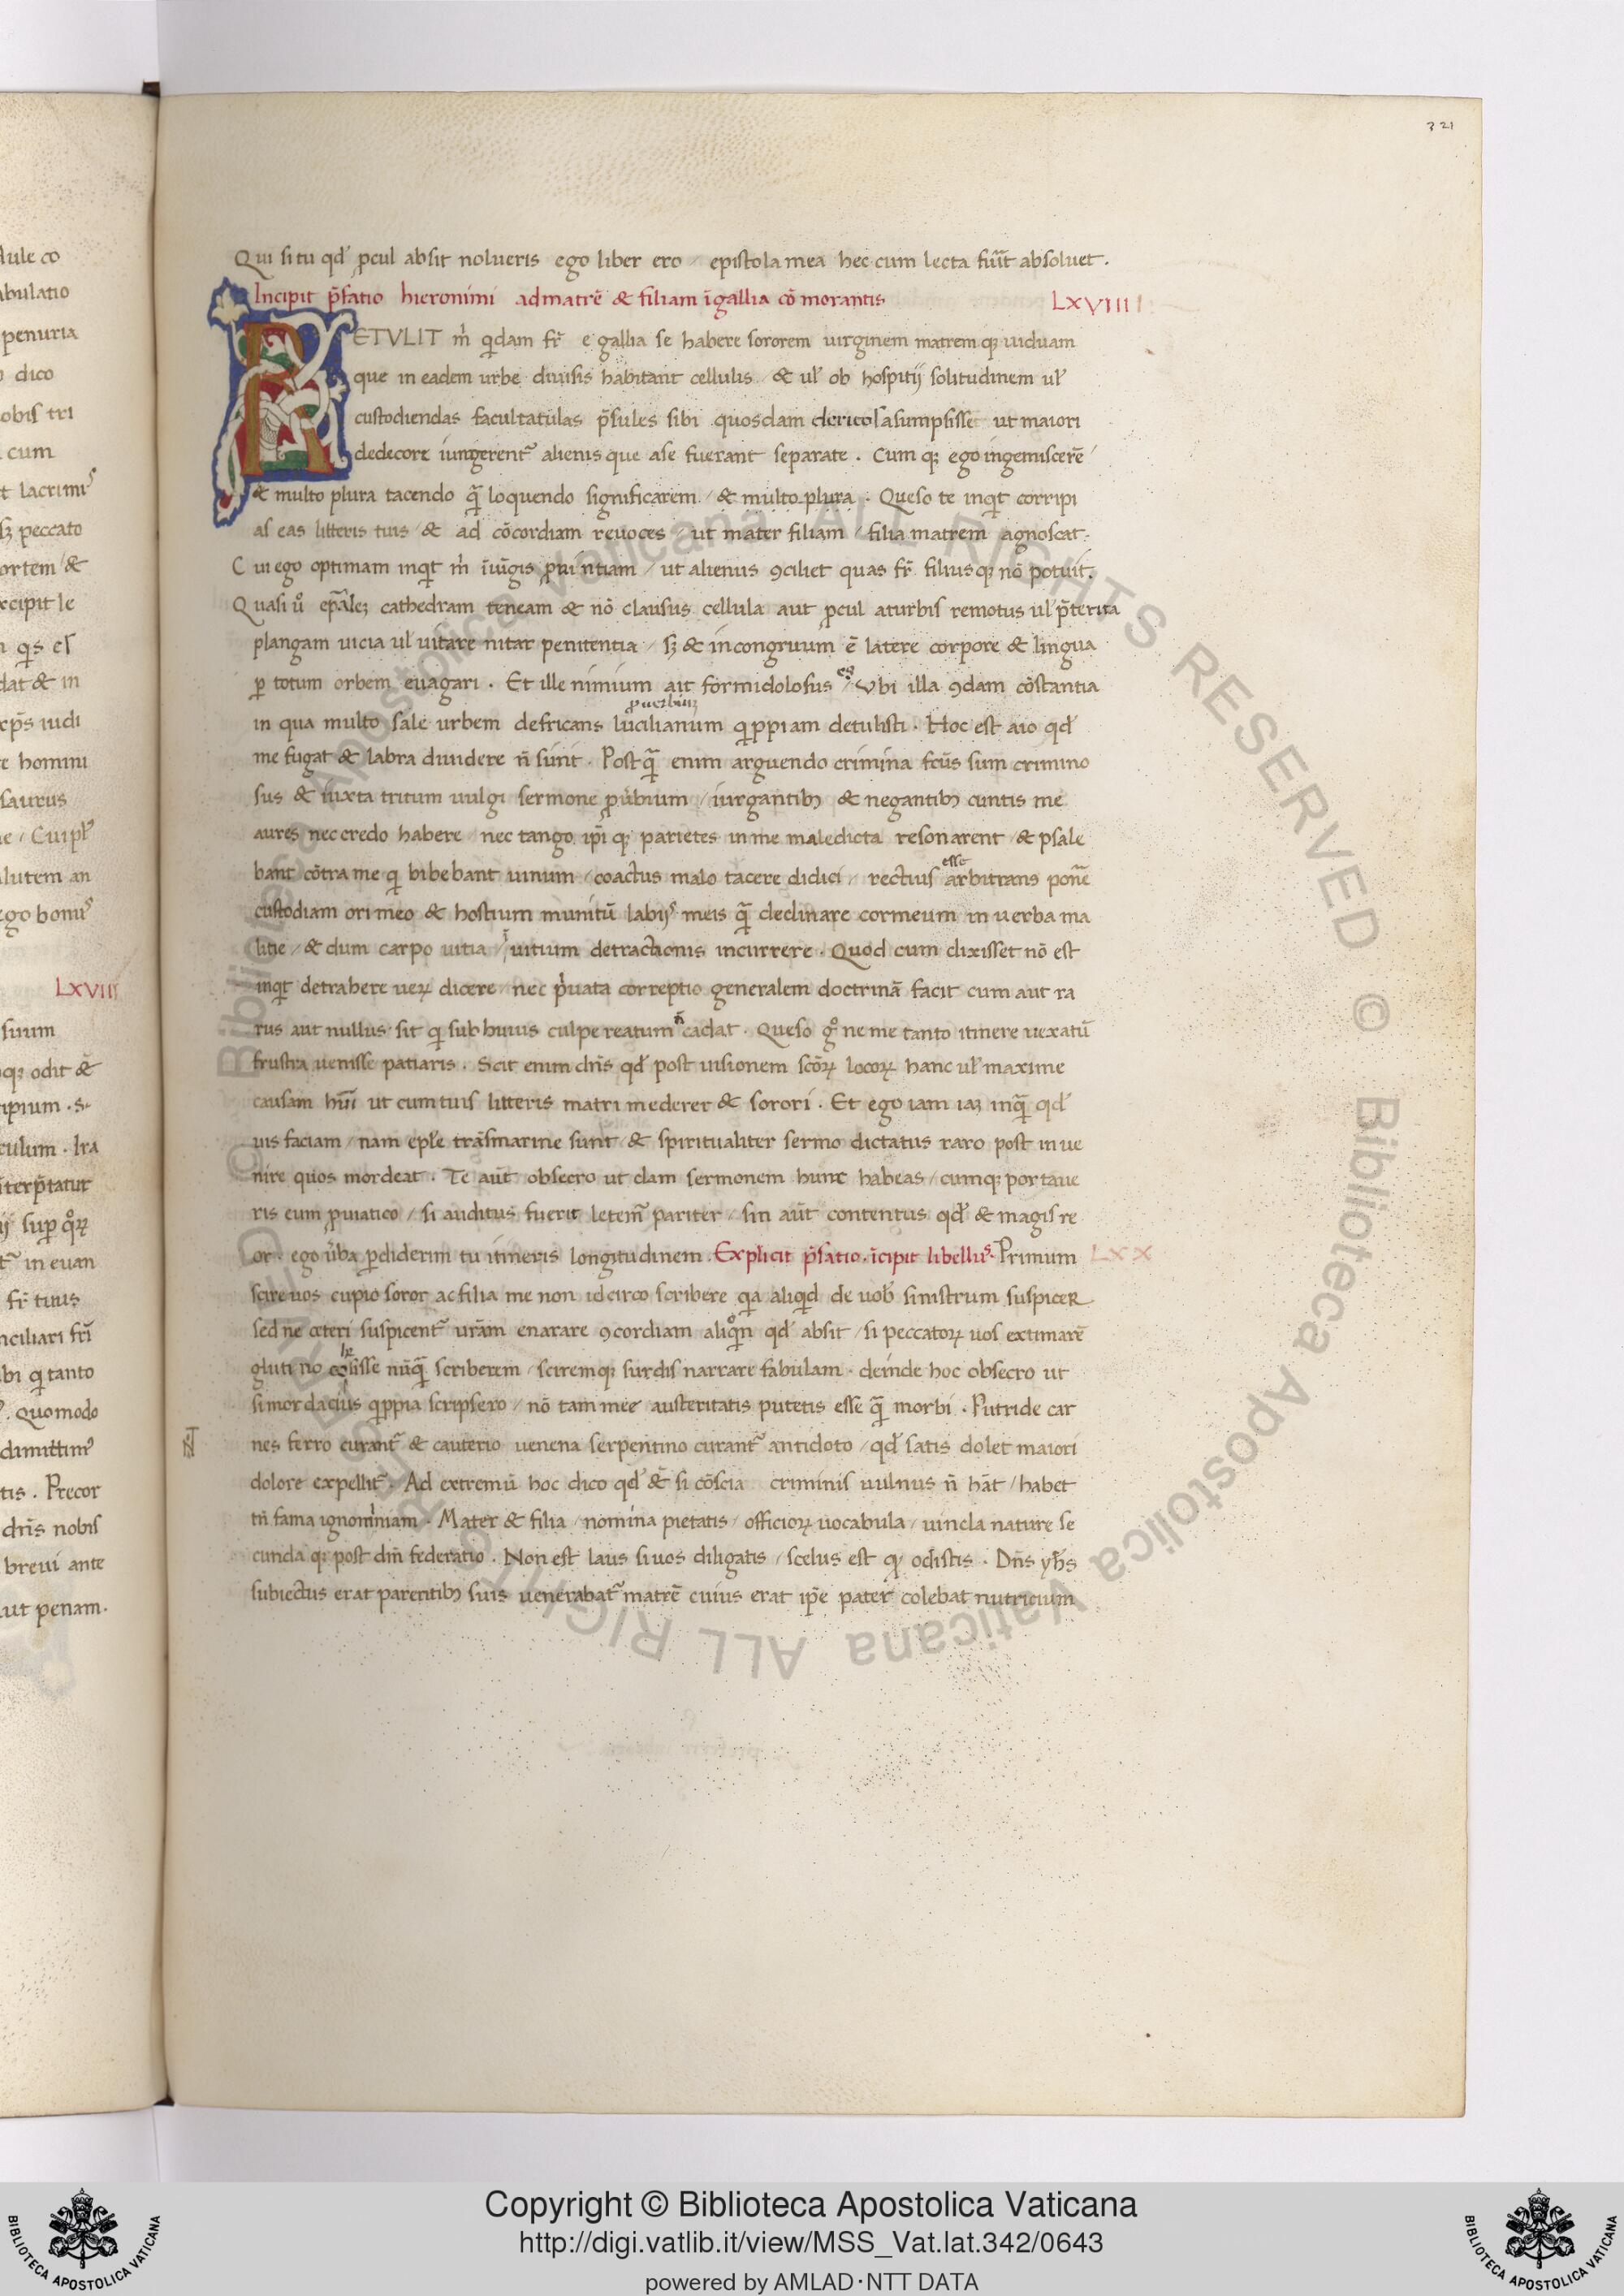 321
Qui si tu qd̛ ꝓcul absit nolueris ego liber ero / epistola mea hec cum lecta fuĩt absoluet.
Incipit p̄fatio hieronimi ad matrē & filiam ĩ gallia cō morantis LXVIIII
RETVLIT m̍ qidam fr̄ e gallia se habere sororem uirginem matrem qꝫ uiduam
que in eadem urbe diuisis habitant cellulis / & ul̛ ob hospitij solitudinem ul̛
custodiendas facultatulas p̄sules sibi quosdam clericos asumpsisse ut maiori
dedecore iungerent᷑ alienis que a se fuerant separate . Cum qꝫ ego ingemiscerē /
& multo plura tacendo q̄ loquendo significarem / & multo plura . Queso te inqt corripi
as eas litteris tuis / & ad cōcordiam reuoces / ut mater filiam / filia matrem agnoscat .
Cui ego optimam inqt m̍ iniūgis ꝓuintiam / ut alienus ꝯciliet quas fr̄ filiusqꝫ nō potuit .
Quasi u̾o ep̄alez cathedram teneam & nō clausus cellula aut ꝓcul a turbis remotus ul̛ p̄terita
plangam uicia ul̛ uitare nitar penitentia / sꝫ & incongruum ē latere corpore & lingua
ꝑ totum orbem euagari . Et ille nimium ait formidolosus es / Vbi illa ꝯdam cōstantia
in qua multo sale urbem defricans lucilianum ꝓuerbiuꝫ qippiam detulisti . Hoc est aio qd̛
me fugat & labra diuidere n̄ sunt . Postq̄ enim arguendo crimina fcūs sum crimino
sus & iuxta tritum uulgi sermone ꝓu̍bium / iurgantibꝫ & negantibꝫ cuntis me
aures nec credo habere / nec tango ip̄i qꝫ parietes in me maledicta resonarent / & psale
bant cōtra me qi bibebant uinum / coactus malo tacere didici / rectius esse arbitrans ponē
custodiam ori meo & hostium munitū labijs meis q̄ declinare cor meum in uerba ma
litie / & dum carpo uitia / ĩ uitium detractionis incurrere . Quod cum dixisset nō est
inqt detrahere ueꝝ dicere / nec p̍uata correptio generalem doctrinā facit cum aut ra
rus aut nullus sit qi sub huius culpe reatum n̄ cadat . Queso g̊ ne me tanto itinere uexatū
frustra uenisse patiaris . Scit enim dn̄s qd̛ post uisionem scōꝝ locoꝝ hanc ul̛ maxime
causam hūi ut cum tuis litteris matri mederer & sorori . Et ego iam iaꝫ inq̄ qd̛
uis faciam / nam epl̄e trāsmarine sunt / & spiritualiter sermo dictatus raro post inue
nire quos mordeat . Te aūt obsecro ut clam sermonem hunc habeas / cumqꝫ portaue
ris eum ꝓ uiatico / si auditus fuerit letem᷑ pariter / sin aūt contentus qd̛ & magis re
or . ego u̍ba ꝑdiderim tu itineris longitudinem . Explicit p̄fatio . ĩcipit libellus . Primum LXX
scire uos cupio soror ac filia me non idcirco scribere qia aliqid de uob̄ sinistrum suspicer
sed ne ceteri suspicent᷑ ur̄am enarare ꝯcordiam alioqin qd̛ absit / si peccatoꝝ uos extimarē
glutino cohesisse nūq̄ scriberem / scirem qꝫ surdis narrare fabulam . deinde hoc obsecro ut
si mordacius qippia scripsero / nō tam mee austeritatis putetis esse q̄ morbi . Putride car
nes ferro curant᷑ & cauterio uenena serpentino curant᷑ antidoto / qd̛ satis dolet maiori
dolore expellit᷑ . Ad extremū hoc dico qd̛ & si cōscia criminis uulnus n̄ hāt / habet
tn̄ fama ignominiam . Mater & filia / nomina pietatis / officioꝝ uocabula / uincla nature se
cunda qꝫ post dm̄ federatio . Non est laus si uos diligatis / scelus est qꝫ odistis . Dn̄s yhs̄
subiectus erat parentibꝫ suis uenerabat᷑ matrē cuius erat ip̄e pater colebat nutricium
Copyright © Biblioteca Apostolica Vaticana
http://digi.vatlib.it/view/MSS_Vat.lat.342/0643
powered by AMLAD·NTT DATA